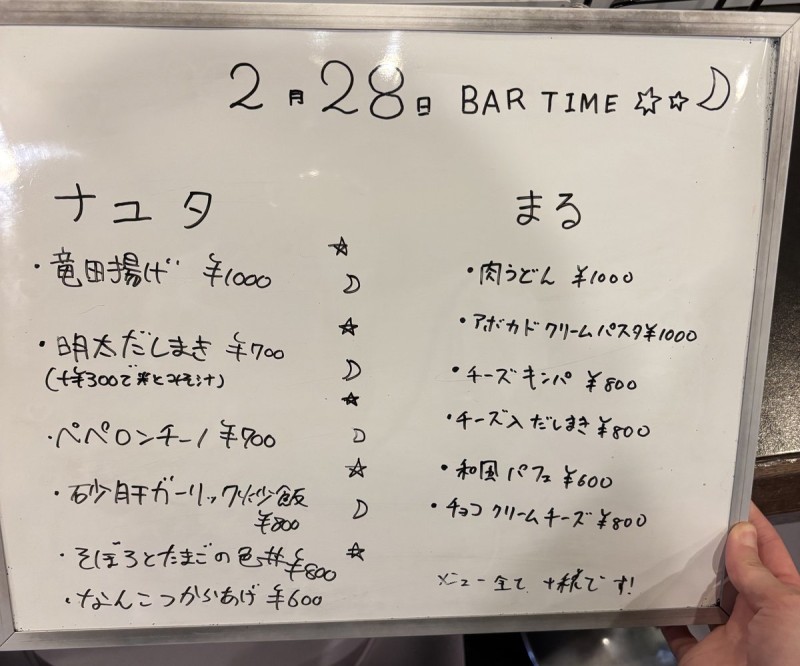 2月28日 BAR TIME ☆☆☽
ナユタ
・竜田揚げ ¥1000
・明太だしまき ¥700
(+¥300で米とみそ汁)
・ペペロンチーノ ¥700
・砂肝ガーリック炒飯
¥800
・そぼろとたまごの色丼 ¥800
・なんこつからあげ ¥600
まる
・肉うどん ¥1000
・アボカドクリームパスタ ¥1000
・チーズキンパ ¥800
・チーズ入だしまき ¥800
・和風パフェ ¥600
・チョコクリームチーズ ¥800
メニュー全て +税です!